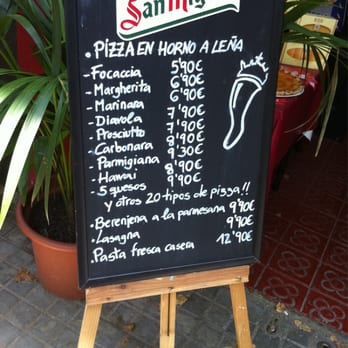 San Mig
• PIZZA EN HORNO A LEÑA
- Focaccia 5'90€
- Margherita 6'90€
- Marinara 6'90€
- Diavola 7'90€
- Prosciutto 7'90€
- Carbonara 8'90€
- Parmigiana 9'30€
- Hawai 8'90€
- 5 quesos 9'90€
y otros 20 tipos de pizza!!
• Berenjena a la parmesana 9'90€
• Lasagna 9'90€
• Pasta fresca casera 12'90€